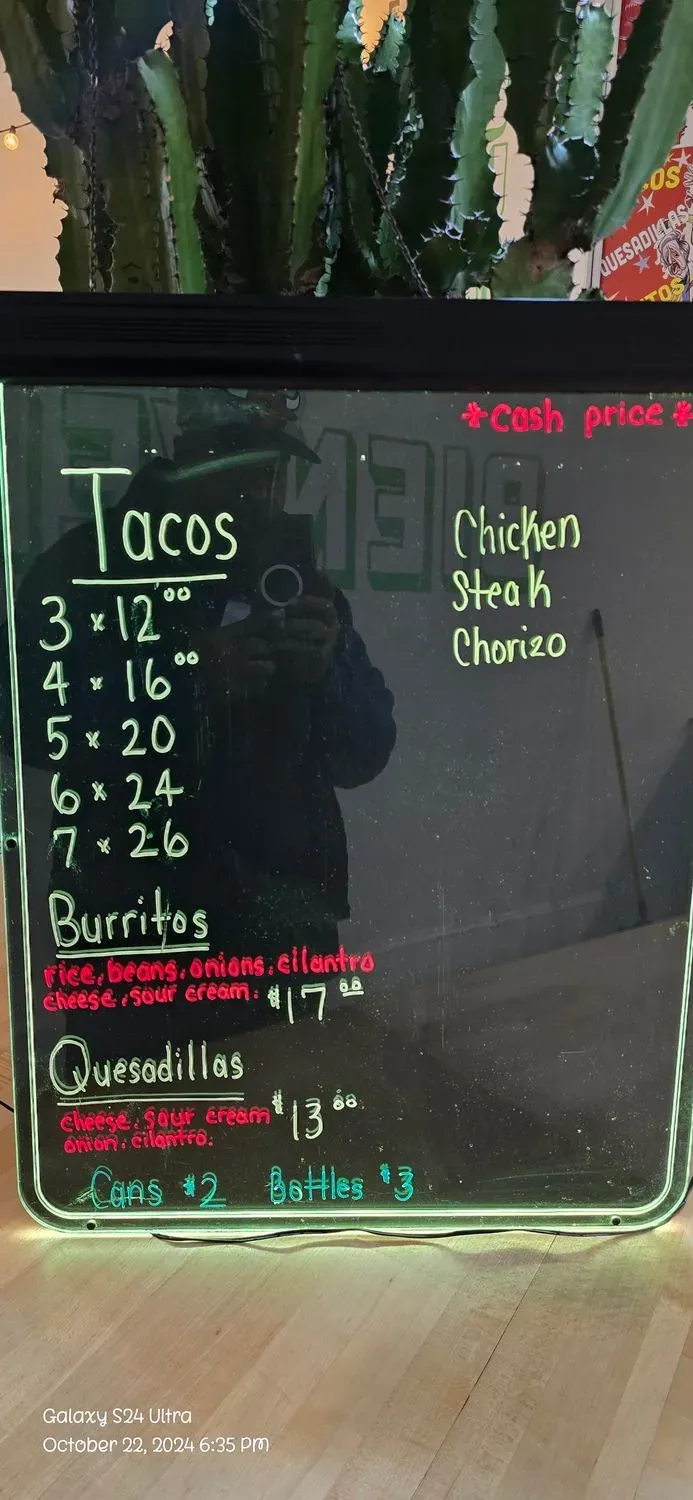 COS
QUESADILLAS
TOS
*cash price*
BIEN
Tacos
3 x 12⁰⁰
4 x 16⁰⁰
5 x 20
6 x 24
7 x 26
Chicken
Steak
Chorizo
Burritos
rice, beans, onions, cilantro
cheese, sour cream. $17⁰⁰
Quesadillas
cheese, sour cream $13⁰⁰
onion, cilantro.
Cans $2 Bottles $3
Galaxy S24 Ultra
October 22, 2024 6:35 PM